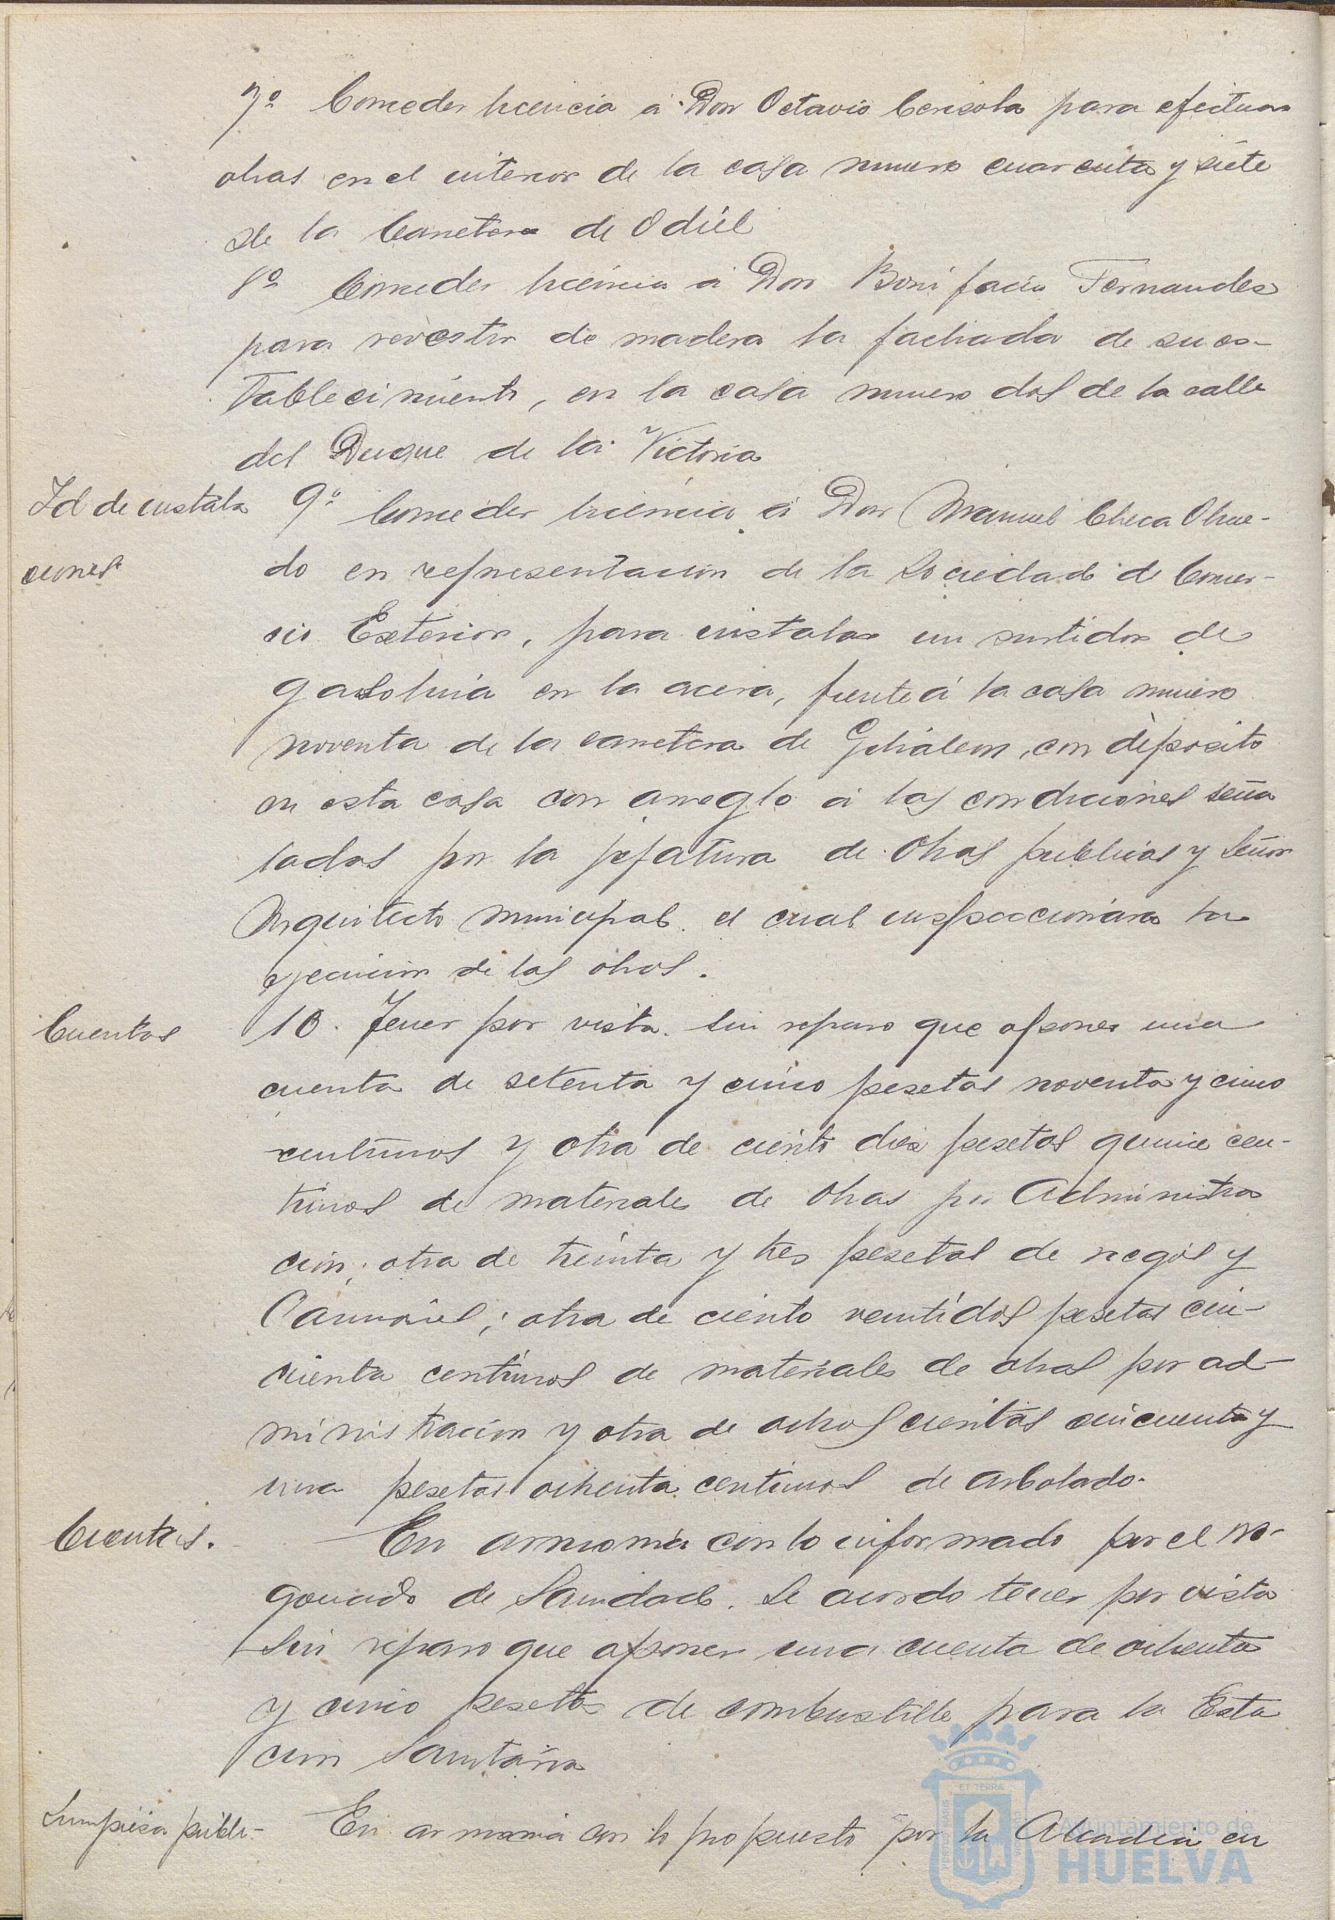 7º Conceder licencia á Don Octavio Cerisola para efectuar
obras en el interior de la casa numero cuarenta y siete
de la Carretera de Odiel
8º Conceder licencia á Don Bonifacio Fernandes
para revestir de madera la fachada de su es-
tablecimiento, en la casa numero dos de la calle
del Duque de la Victoria
Id de instala
ciones
9º Conceder licencia á Don Manuel Checa Olme-
do en representacion de la Sociedad de Comer-
cio Exterior, para instalar un surtidor de
gasolina en la acera, frente á la casa numero
noventa de la carretera de Gibraleon, con deposito
en esta casa con arreglo á las condiciones seña
ladas por la jefatura de Obras publicas y Señor
Arquitecto municipal el cual inspeccionara la
ejecucion de las obras.
Cuentas
10. Tener por vista sin reparo que oponer una
cuenta de setenta y cinco pesetas noventa y cinco
centimos y otra de ciento diez pesetas quince cen-
timos de materiales de Obras por Administra
cion; otra de treinta y tres pesetas de
; otra de ciento veintidos pesetas cin-
cuenta centimos de materiales de obras por ad-
ministracion y otra de ochoscientas cincuenta y
una pesetas ochenta centimos de arbolado.
Cuentas.
En armonia con lo informado por el ne-
gociado de Sanidad. Se acordo tener por vista
sin reparo que oponer una cuenta de ochenta
y cinco pesetas de combustible para la Esta
cion Sanitaria
Limpieza públi-
En armonia con lo propuesto por la Alcaldia en
Ayuntamiento de
HUELVA